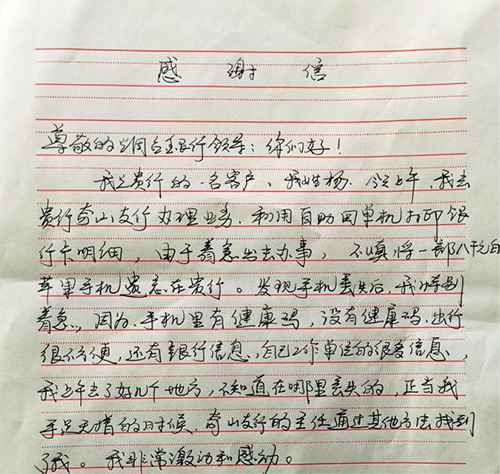 感谢信
尊敬的烟台银行领导：你们好！
我是贵行的一名客户、我姓杨、今天上午，我去
贵行奇山支行办理业务，利用自助回单机打印银
行卡明细，由于着急出去办事，不慎将一部八千元的
苹果手机遗忘在贵行。发现手机丢失后，我特别
着急，因为手机里有健康码，没有健康码出行
很不方便，还有银行信息，自己工作单位的很多信息，
我上午去了好几个地方，不知道在哪里丢失的，正当我
手足无措的时候，奇山支行的主任通过其他方法找到
了我。我非常激动和感动。